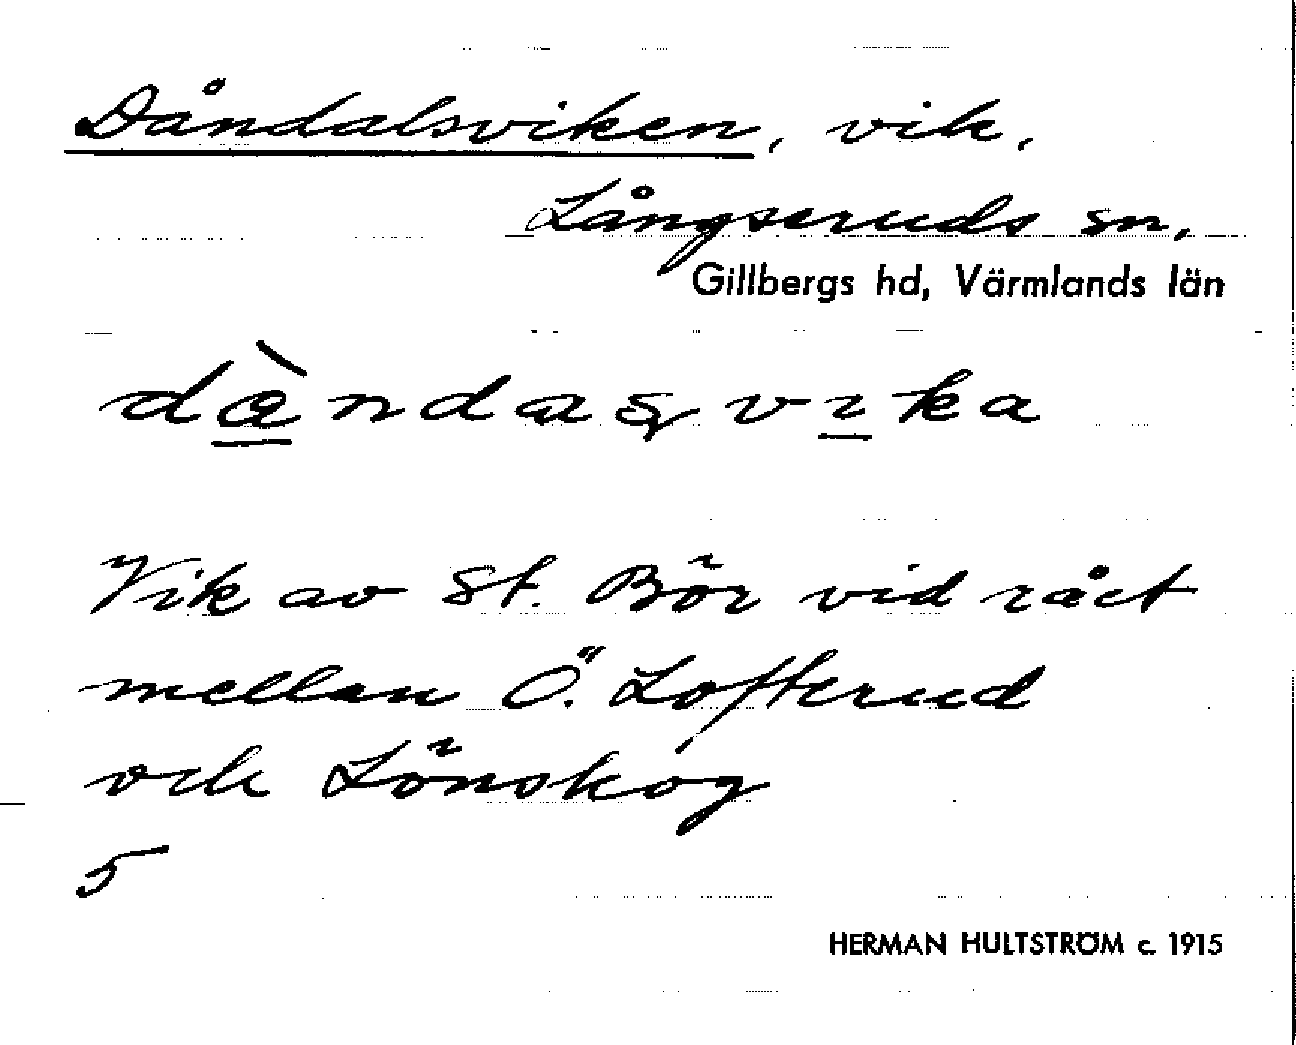 Dåndalsviken, vik,
Långseruds sn,
Gillbergs hd, Värmlands län
Vik av St. Bör vid rået
mellan Ö. Lofterud
och Lönskog
5
HERMAN HULTSTRÖM c. 1915